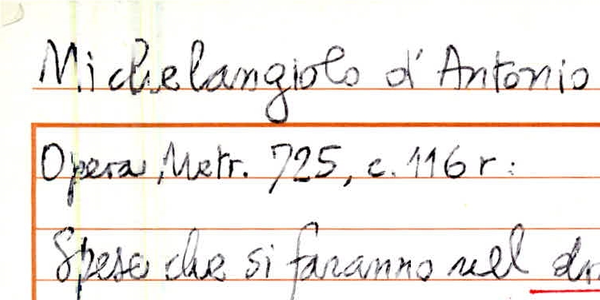 Michelangiolo d'Antonio
Opera, Metr. 725, c. 116 r:
Spese che si faranno nel